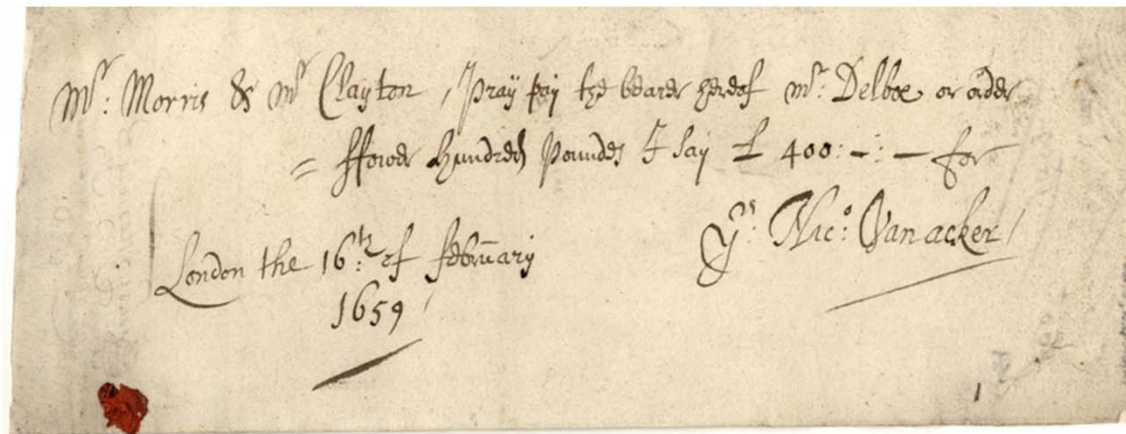 Mr: Morris & Mr Clayton, Pray pay the bearer hereof Mr: Delboe or order
= ffower hundred Poundes I say £ 400:—:— for
Yrs: Nico: Vanacker
London the 16th: of february
1659